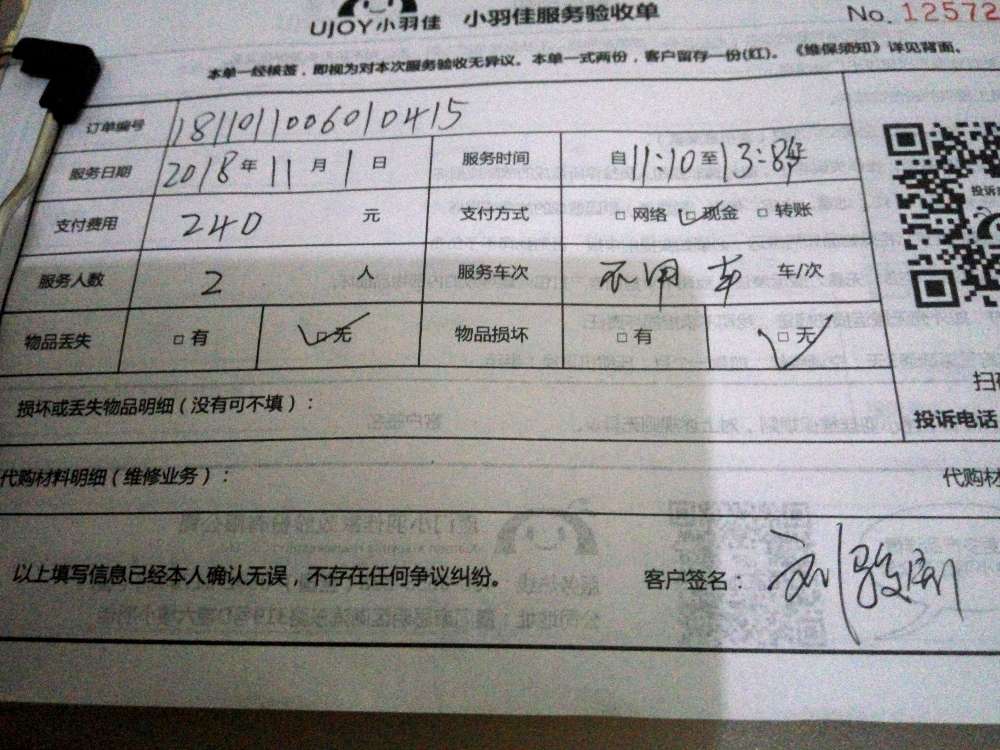 UJOY小羽佳 小羽佳服务验收单 No. 12572
本单一经核签，即视为对本次服务验收无异议。本单一式两份，客户留存一份(红)。《维保须知》详见背面。
订单编号 181101100601 0415
服务日期 2018年11月1日 服务时间 自11:10至13:
支付费用 240 元 支付方式 □网络 □现金 □转账
服务人数 2 人 服务车次 不用车 车/次
物品丢失 □有 □无 物品损坏 □有 □无
损坏或丢失物品明细（没有可不填）：
投诉电话
代购材料明细（维修业务）： 代购材
以上填写信息已经本人确认无误，不存在任何争议纠纷。 客户签名：